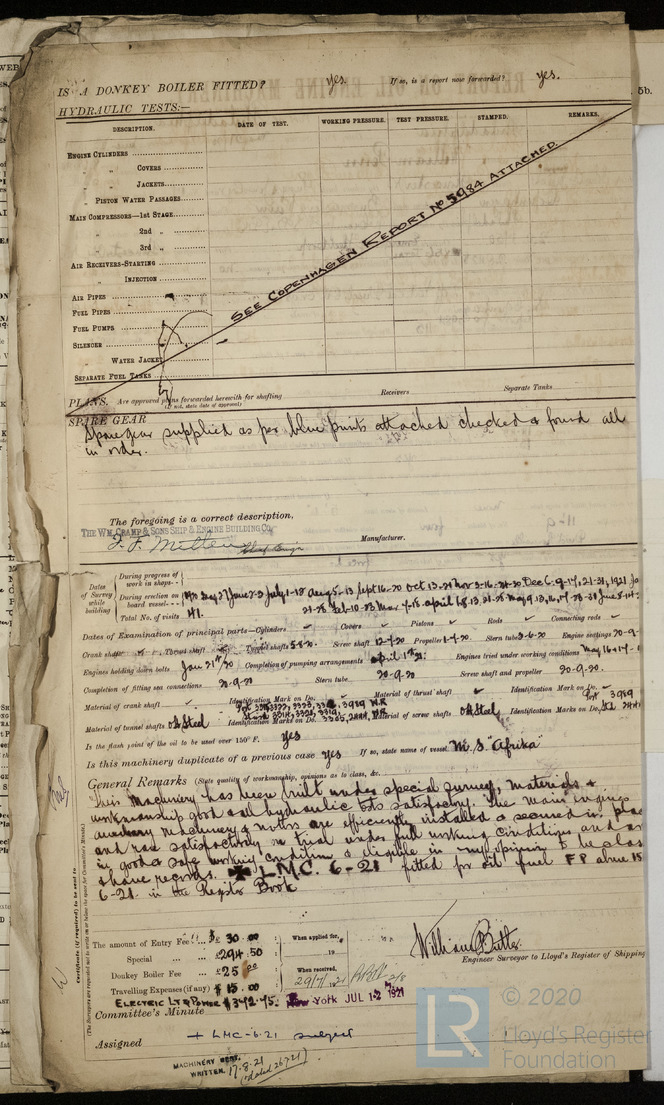 IS A DONKEY BOILER FITTED? yes. If so, is a report now forwarded? yes.
HYDRAULIC TESTS:—
DESCRIPTION. DATE OF TEST. WORKING PRESSURE. TEST PRESSURE. STAMPED. REMARKS.
ENGINE CYLINDERS
" COVERS
" JACKETS
" PISTON WATER PASSAGES
MAIN COMPRESSORS—1st STAGE
" 2nd "
" 3rd "
AIR RECEIVERS-STARTING
" INJECTION
AIR PIPES
FUEL PIPES
FUEL PUMPS
SILENCER
" WATER JACKET
SEPARATE FUEL TANKS
SEE COPENHAGEN REPORT No 5984 ATTACHED.
PLANS. Are approved plans forwarded herewith for shafting Receivers Separate Tanks
(If not, state date of approval)
SPARE GEAR
Spare gear supplied as per blue prints attached checked & found all
in order.
The foregoing is a correct description,
THE WM. CRAMP & SONS SHIP & ENGINE BUILDING CO.
Manufacturer.
Dates of Survey while building
During progress of work in shops--
During erection on board vessel---
Total No. of visits 41.
Dates of Examination of principal parts—Cylinders Covers Pistons Rods Connecting rods
Crank shaft Thrust shaft Tunnel shafts 5-8-20. Screw shaft 12-7-20 Propeller 1-9-20. Stern tube 3-6-20 Engine seatings 20-9-
Engines holding down bolts Jan 21st 20 Completion of pumping arrangements April 1st 21. Engines tried under working conditions
Completion of fitting sea connections 20-9-20 Stern tube 20-9-20 Screw shaft and propeller 20-9-20.
Material of crank shaft Identification Mark on Do. Material of thrust shaft Identification Mark on Do.
Material of tunnel shafts OH Steel Identification Marks on Do. Material of screw shafts OH Steel Identification Marks on Do.
Is the flash point of the oil to be used over 150° F. yes
Is this machinery duplicate of a previous case yes If so, state name of vessel M.S. "Afrika"
General Remarks (State quality of workmanship, opinions as to class, &c.
This Machinery has been built under special survey, materials &
workmanship good & all hydraulic tests satisfactory. The main engines
auxiliary machinery & motors are efficiently installed & secured in
and ran satisfactorily on trial under full working conditions and
in good & safe working condition & eligible in my opinion to be
& have records. ✠ L.M.C. 6-21 fitted for oil fuel F P above 15
6-21. in the Register Book
Certificate (if required) to be sent to
(The Surveyors are requested not to write on or below the space for Committee's Minute.)
The amount of Entry Fee £ 30.00 When applied for,
Special £294.50 19
Donkey Boiler Fee £25.00 When received,
Travelling Expenses (if any) $ 15.00 29/7/1921
ELECTRIC LT & POWER $342.45.
William Butler
Engineer Surveyor to Lloyd's Register of Shipping
New York JUL 12 1921
Committee's Minute
Assigned + LMC-6.21 subject
MACHINERY CERT.
WRITTEN. 17-8-21
LR
© 2020
Lloyd's Register
Foundation